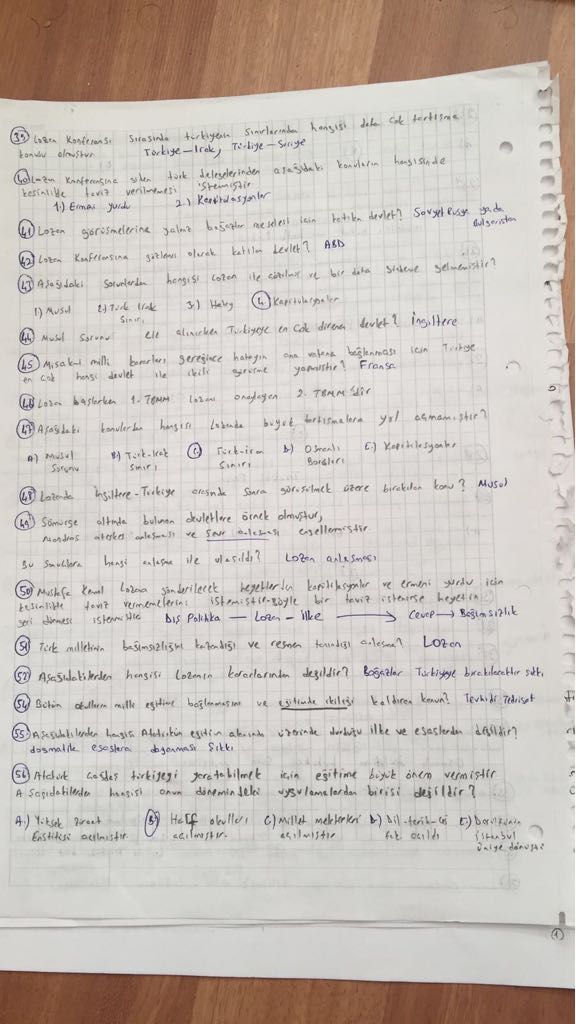 39 Lozan Konferansı sırasında türkiyenin sınırlarından hangisi daha çok tartışma
konusu olmuştur Türkiye-Irak, Türkiye-Suriye
40 Lozan Konferansına giden türk delegelerinden aşağıdaki konuların hangisinde
kesinlikle taviz verilmemesi istemiştir
1.) Ermeni yurdu 2.) Kapitülasyonlar
41 Lozan görüşmelerine yalnız boğazlar meselesi için katılan devlet? Sovyet Rusya yada
Bulgaristan
42 Lozan Konferansına gözlemci olarak katılan devlet? ABD
43 Aşağıdaki sorunlardan hangisi Lozan ile çözülmüş ve bir daha gündeme gelmemiştir?
1) Musul 2) Türk Irak Sınırı 3.) Hatay 4. Kapitülasyonlar
44 Musul Sorunu ele alınırken Türkiyeye en çok direnen devlet? İngiltere
45 Misak-ı milli kararları gereğince hatayın ana vatana bağlanması için Türkiye
en çok hangi devlet ile ikili görüşme yapmıştır? Fransa
46 Lozan başlarken 1. TBMM Lozanı onaylayan 2. TBMM'dir
47 Aşağıdaki konulardan hangisi Lozanda büyük tartışmalara yol açmamıştır?
A) Musul Sorunu B) Türk-Irak sınırı C) Türk-iran Sınırı D) Osmanlı Borçları E.) Kapitülasyonlar
48 Lozanda İngiltere-Türkiye arasında sonra görüşülmek üzere bırakılan konu? Musul
49 Sömürge altında bulunan devletlere örnek olmuştur,
mondros ateşkes anlaşması ve Sevr anlaşması engellemiştir
Bu sonuçlara hangi anlaşma ile ulaşıldı? Lozan anlaşması
50 Mustafa Kemal Lozana gönderilecek heyetlerden kapitülasyonlar ve ermeni yurdu için
kesinlikle taviz vermemelerini istemiştir böyle bir taviz istenirse heyetin
geri dönmesi istemiştir Dış Politika — Lozan - İlke → Cevap → Bağımsızlık
51 Türk milletinin bağımsızlığını kazandığı ve resmen tanındığı anlaşma? Lozan
52 Aşağıdakilerden hangisi Lozanın kararlarından değildir? Boğazlar Türkiyeye bırakılacaktır şıkkı
54 Bütün okulların milli eğitime bağlanmasını ve eğitimde ikiliği kaldıran kanun? Tevhidi Tedrisat
55 Aşağıdakilerden hangisi Atatürkün eğitim alanında üzerinde durduğu ilke ve esaslardan değildir?
dogmatik esaslara dayanması Şıkkı
56 Atatürk çağdaş türkiyeyi yaratabilmek için eğitime büyük önem vermiştir
Aşağıdakilerden hangisi onun dönemindeki uygulamalardan birisi değildir?
A.) Yüksek Ziraat B) Harf okulları C) Millet mektepleri D) Dil-tarih-coğ E.) Darülfünun
Enstitüsü açılmıştır açılmıştır. açılmıştır fak açıldı istanbul
üniye dönüştü
1